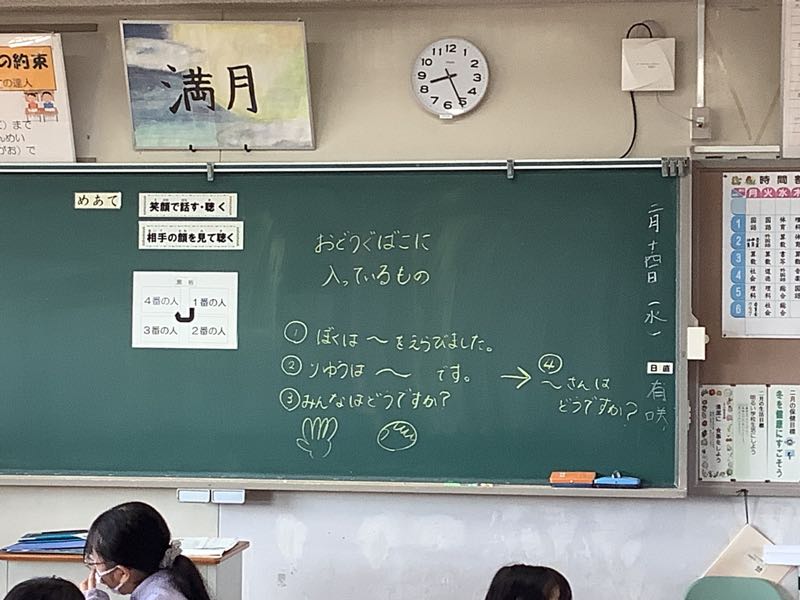 の約束
の達人
まで
満月
12
1
2
3
4
5
6
7
8
9
10
11
めあて
笑顔で話す・聴く
相手の顔を見て聴く
黒板
4番の人
1番の人
3番の人
2番の人
おどうぐばこに
入っているもの
① ぼくは 〜 をえらびました。
② りゆうは 〜 です。
③ みんなはどうですか?
→ ④
〜さんは
どうですか?
二月十四日(水)
日直
有咲
時間割
月火水木
1
2
3
4
5
6
二月の保健目標
冬を健康にすごそう
二月の生活目標